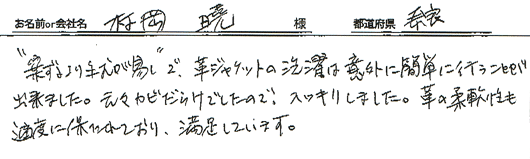 お名前or会社名 村岡 暁 様 都道府県 奈良
"案ずるより生むが易し"で、革ジャケットの洗濯は意外に簡単に行うことが
出来ました。元々カビだらけでしたので、スッキリしました。革の柔軟性も
適度に保たれており、満足しています。